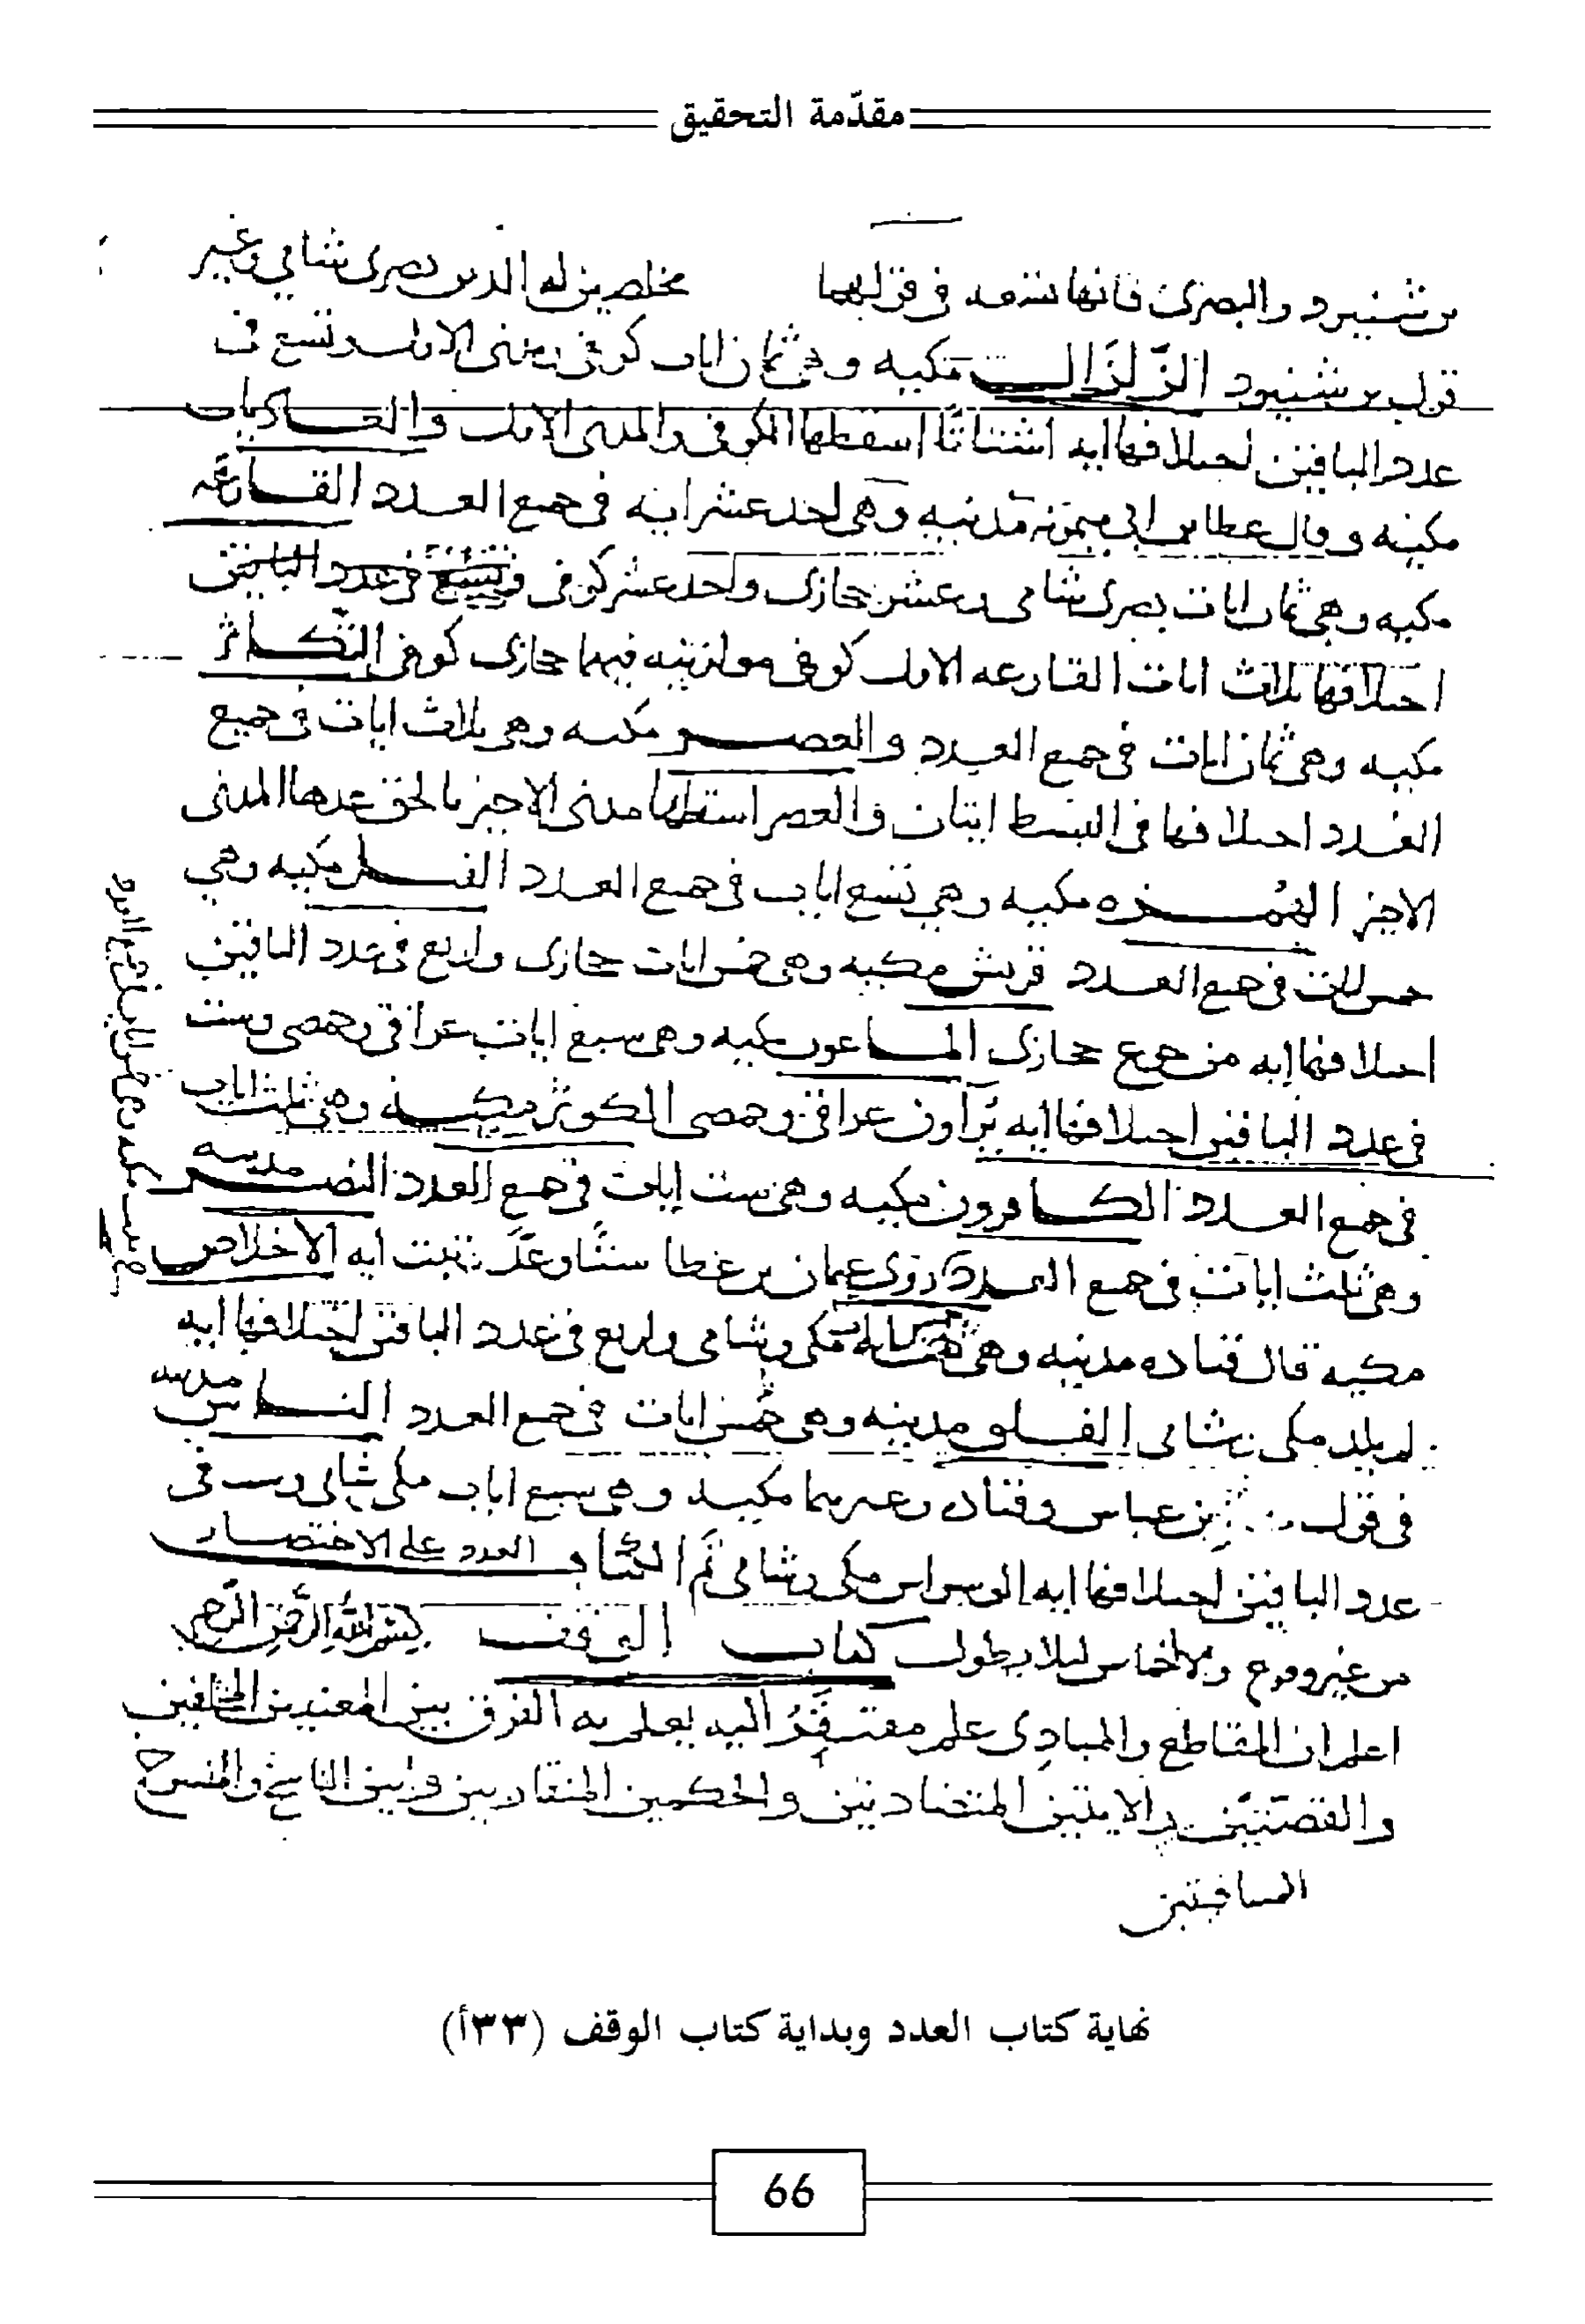 مقدّمة التحقيق
بن شنبود والبصرى فانها تسع فى قولهما مخلصين له الدين بصرى شامي وغير
قول بن شنبود الزلزال مكيه وهى ثمان ايات كوفى ومدنى الاول وتسع فى
عدد الباقين اختلافها ايه اشتاتا اسقطها الكوفى والمدنى الاول والعاديات
مكيه وقال عطا بن ابى مدنيه وهى احد عشر ايه فى جميع العدد القارعه
مكيه وهى ثمان ايات بصرى شامى وعشر حجازى واحد عشر كوفى
اختلافها ثلاث ايات القارعه الاول كوفى موازينه فيهما حجازى كوفى التكاثر
مكيه وهى ثمان ايات فى جميع العدد والعصر مكيه وهى ثلاث ايات فى جميع
العدد اختلافها فى البسط ايتان والعصر اسقطها مدنى الاخير بالحق عدها المدنى
الاخير الهمزه مكيه وهى تسع ايات فى جميع العدد الفيل مكيه وهي
خمس ايات فى جميع العدد قريش مكيه وهى خمس ايات حجازى واربع فى عدد الباقين
اختلافها ايه من جوع حجازى الماعون مكيه وهى سبع ايات عراقى وحمصى وست
فى عدد الباقين اختلافها ايه يراون عراقى وحمصى الكوثر مكيه وهى ثلث ايات
فى جميع العدد الكافرون مكيه وهى ست ايات فى جميع العدد النصر مدنيه
وهى ثلث ايات فى جميع العدد وروى عثمان بن عطا ايه الاخلاص
مكيه قال قتاده مدنيه وهى خمس ايات مكى وشامى واربع فى عدد الباقين اختلافها ايه
لم يلد مكى وشامى الفلق مدنيه وهى خمس ايات فى جميع العدد الناس مدنيه
فى قول بن عباس وقتاده وغيرهما مكيه وهى سبع ايات مكى شامى وست فى
عدد الباقين اختلافها ايه الوسواس مكى وشامى تم الكتاب العدد على الاختصار
من غير والاخماس ليلا يطول كتاب الوقف بسم الله الرحمن الرحيم
اعلم ان المقاطع والمبادى علم مفتقر اليه يعلم به الفرق بين المعنيين المختلفين
والقصتين والايتين المتضادتين والحكمين المتقاربين وبين الناسخ والمنسوخ
نهاية كتاب العدد وبداية كتاب الوقف (٣٣أ)
66